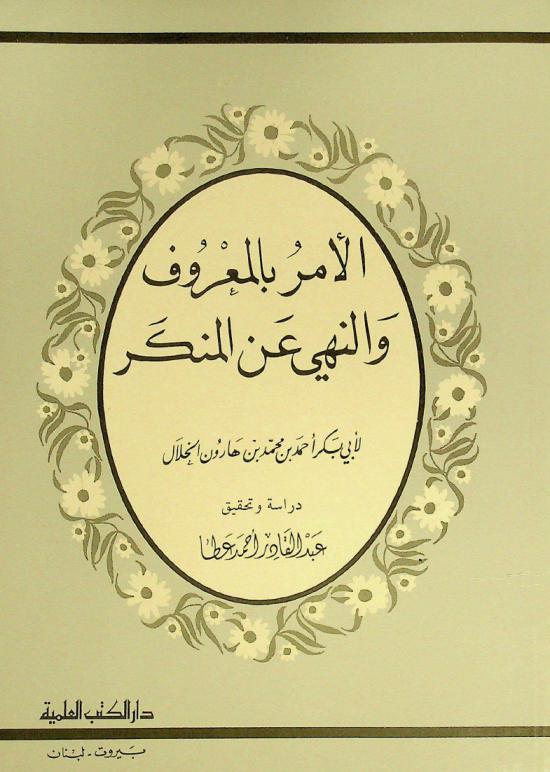 الأمرُ بالمعْرُوف
وَالنهي عَن المنكَر
لأبي بَكر أحمَد بن محمّد بن هَارون الخلال
دراسة وتحقيق
عَبْد القَادِر أحمَد عَطا
دار الكتب العلمية
بيروت - لبنان